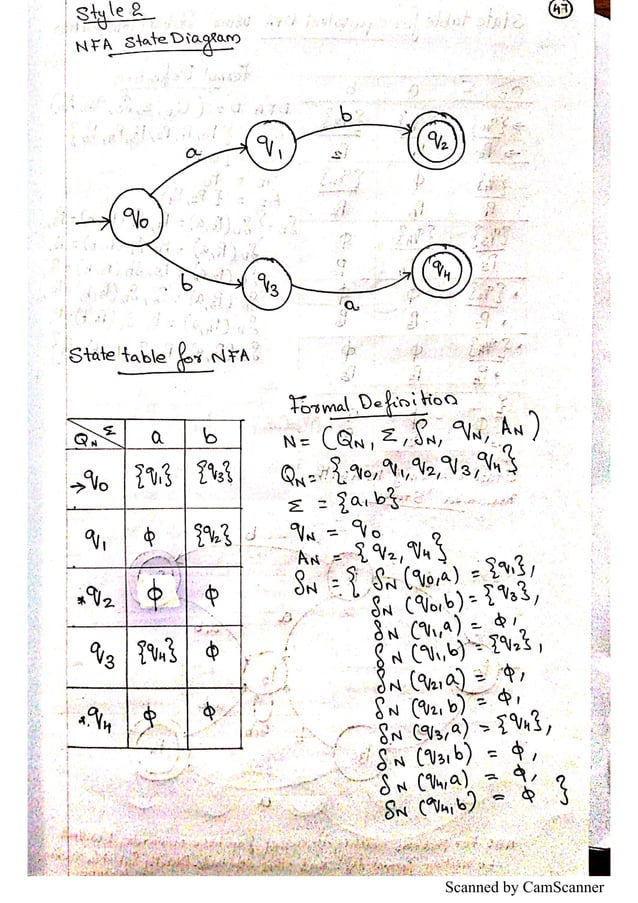 47
Style 2
NFA State Diagram
a
b
q0
q1
q2
b
a
q3
q4
State table for NFA
QN Σ a b
→q0 {q1} {q3}
q1 ϕ {q2}
*q2 ϕ ϕ
q3 {q4} ϕ
*q4 ϕ ϕ
Formal Definition
N = (QN, Σ, δN, qN, AN)
QN = {q0, q1, q2, q3, q4}
Σ = {a,b}
qN = q0
AN = {q2, q4}
δN = { δN (q0,a) = {q1},
δN (q0,b) = {q3},
δN (q1,a) = ϕ,
δN (q1,b) = {q2},
δN (q2,a) = ϕ,
δN (q2,b) = ϕ,
δN (q3,a) = {q4},
δN (q3,b) = ϕ,
δN (q4,a) = ϕ,
δN (q4,b) = ϕ }
Scanned by CamScanner